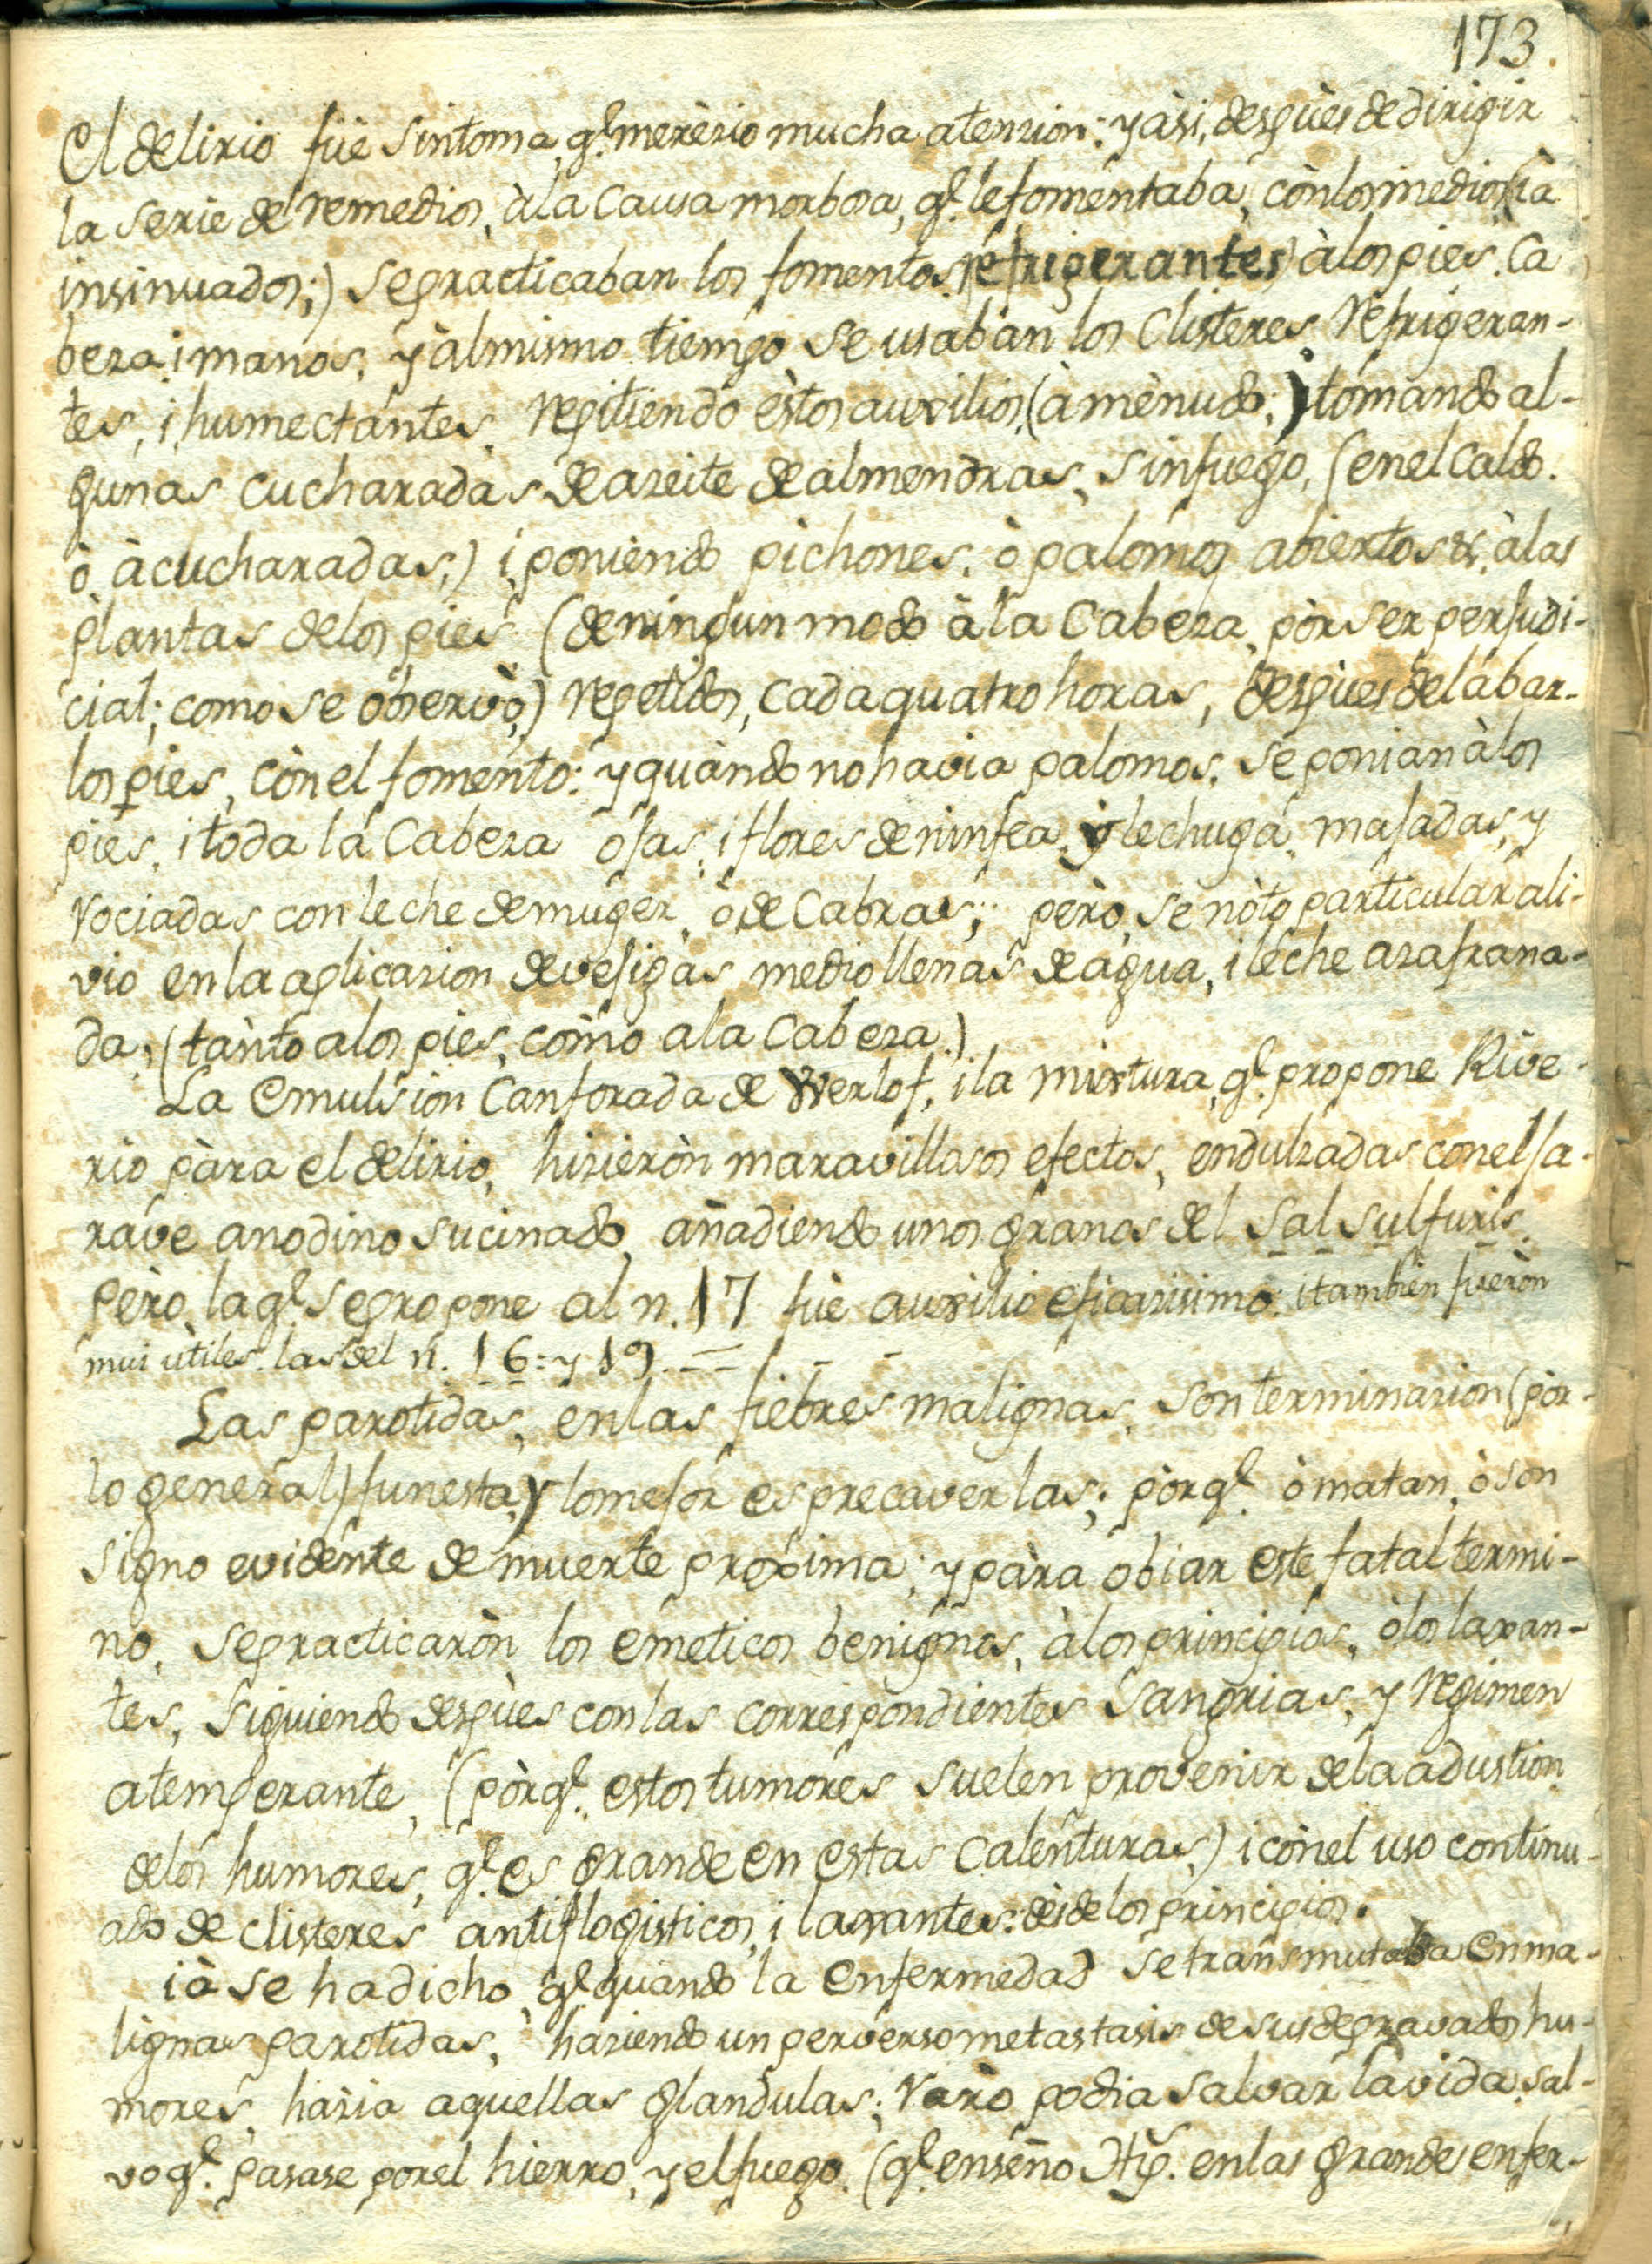 173.
El delirio fuè sintoma, qᵉ merèzio mucha atenzion: y àsi, despùes de dirigir
la serie de remedios, à la causa morbosa, qᵉ le fomentaba, còn los medios (ia
insinuados;) se practicaban los fomentos refrigerantes à los pies, Ca
beza, i manos, y àl mismo tiempo se usaban los Clisteres refrigeran-
tes, i humectantes, repitiendo èstos auxilios, (à mènudo;) tomando al-
gunas cucharadas de azeite de almendras, sin fuego, (en el caldo.
ò à cucharadas;) i poniendo pichones, ò palomos abiertos &, à las
plantas de los pies (de ningun modo à la Cabeza, pòr ser perjudi-
cial; como se observò;) repetidos, cada quatro horas, despues de labar-
los pies, còn el fomento: y quàndo no havia palomos, se ponian à los
pies, i toda la Cabeza ojas, i flores de ninfea, y lechuga, majadas, y
rociadas con leche de muger, ò de Cabras; però, se nòto particular ali-
vio en la aplicazion de vejigas medio llenas de agua, i leche azafrana-
da, (tànto a los pies, còmo a la Cabeza.)
La Emulsion Canforada de Werlof, i la mixtura, qᵉ propone Rive-
rio pàra el delirio, hizieròn maravillosos efectos, endulzadas con el Ja-
rave anodino sucinado, añadiendo unos granos del Sal Sulfuris.
Però, la qᵉ se propone al n. 17 fuè auxilio eficazisimo: i tambien fueròn
mui ùtiles, las del n. 16: y 19. =
Las parotidas, en las fiebres malignas, son terminazion (pòr-
lo general) funesta, y lo mejor es precaverlas; pòrqᵉ ò matan, ò son
signo evidente de muerte proxima; y pàra obiar este fatal termi-
no, se practicaròn los emeticos benignos, à los principios, ò los laxan-
tes, siguiendo despùes con las correspondientes Sangrias, y regimen
atemperante, (pòrqᵉ estos tumores suelen provenir de la adustion
de los humores, qᵉ es grande en estas Calenturas,) i còn el uso continu-
ado de clisteres antiflogisticos, i laxantes: dèsde los principios.
ià se ha dicho, qᵉ quando la enfermedad se transmutaba en ma-
lignas parotidas, haziendo un perverso metastasis de sus depravados hu-
mores, hàzia aquellas glandulas; raro podia salvar la vida, sal-
vo qᵉ pasase por el hierro, y el fuego. (qᵉ enseño Hip. en las grandes enfer-